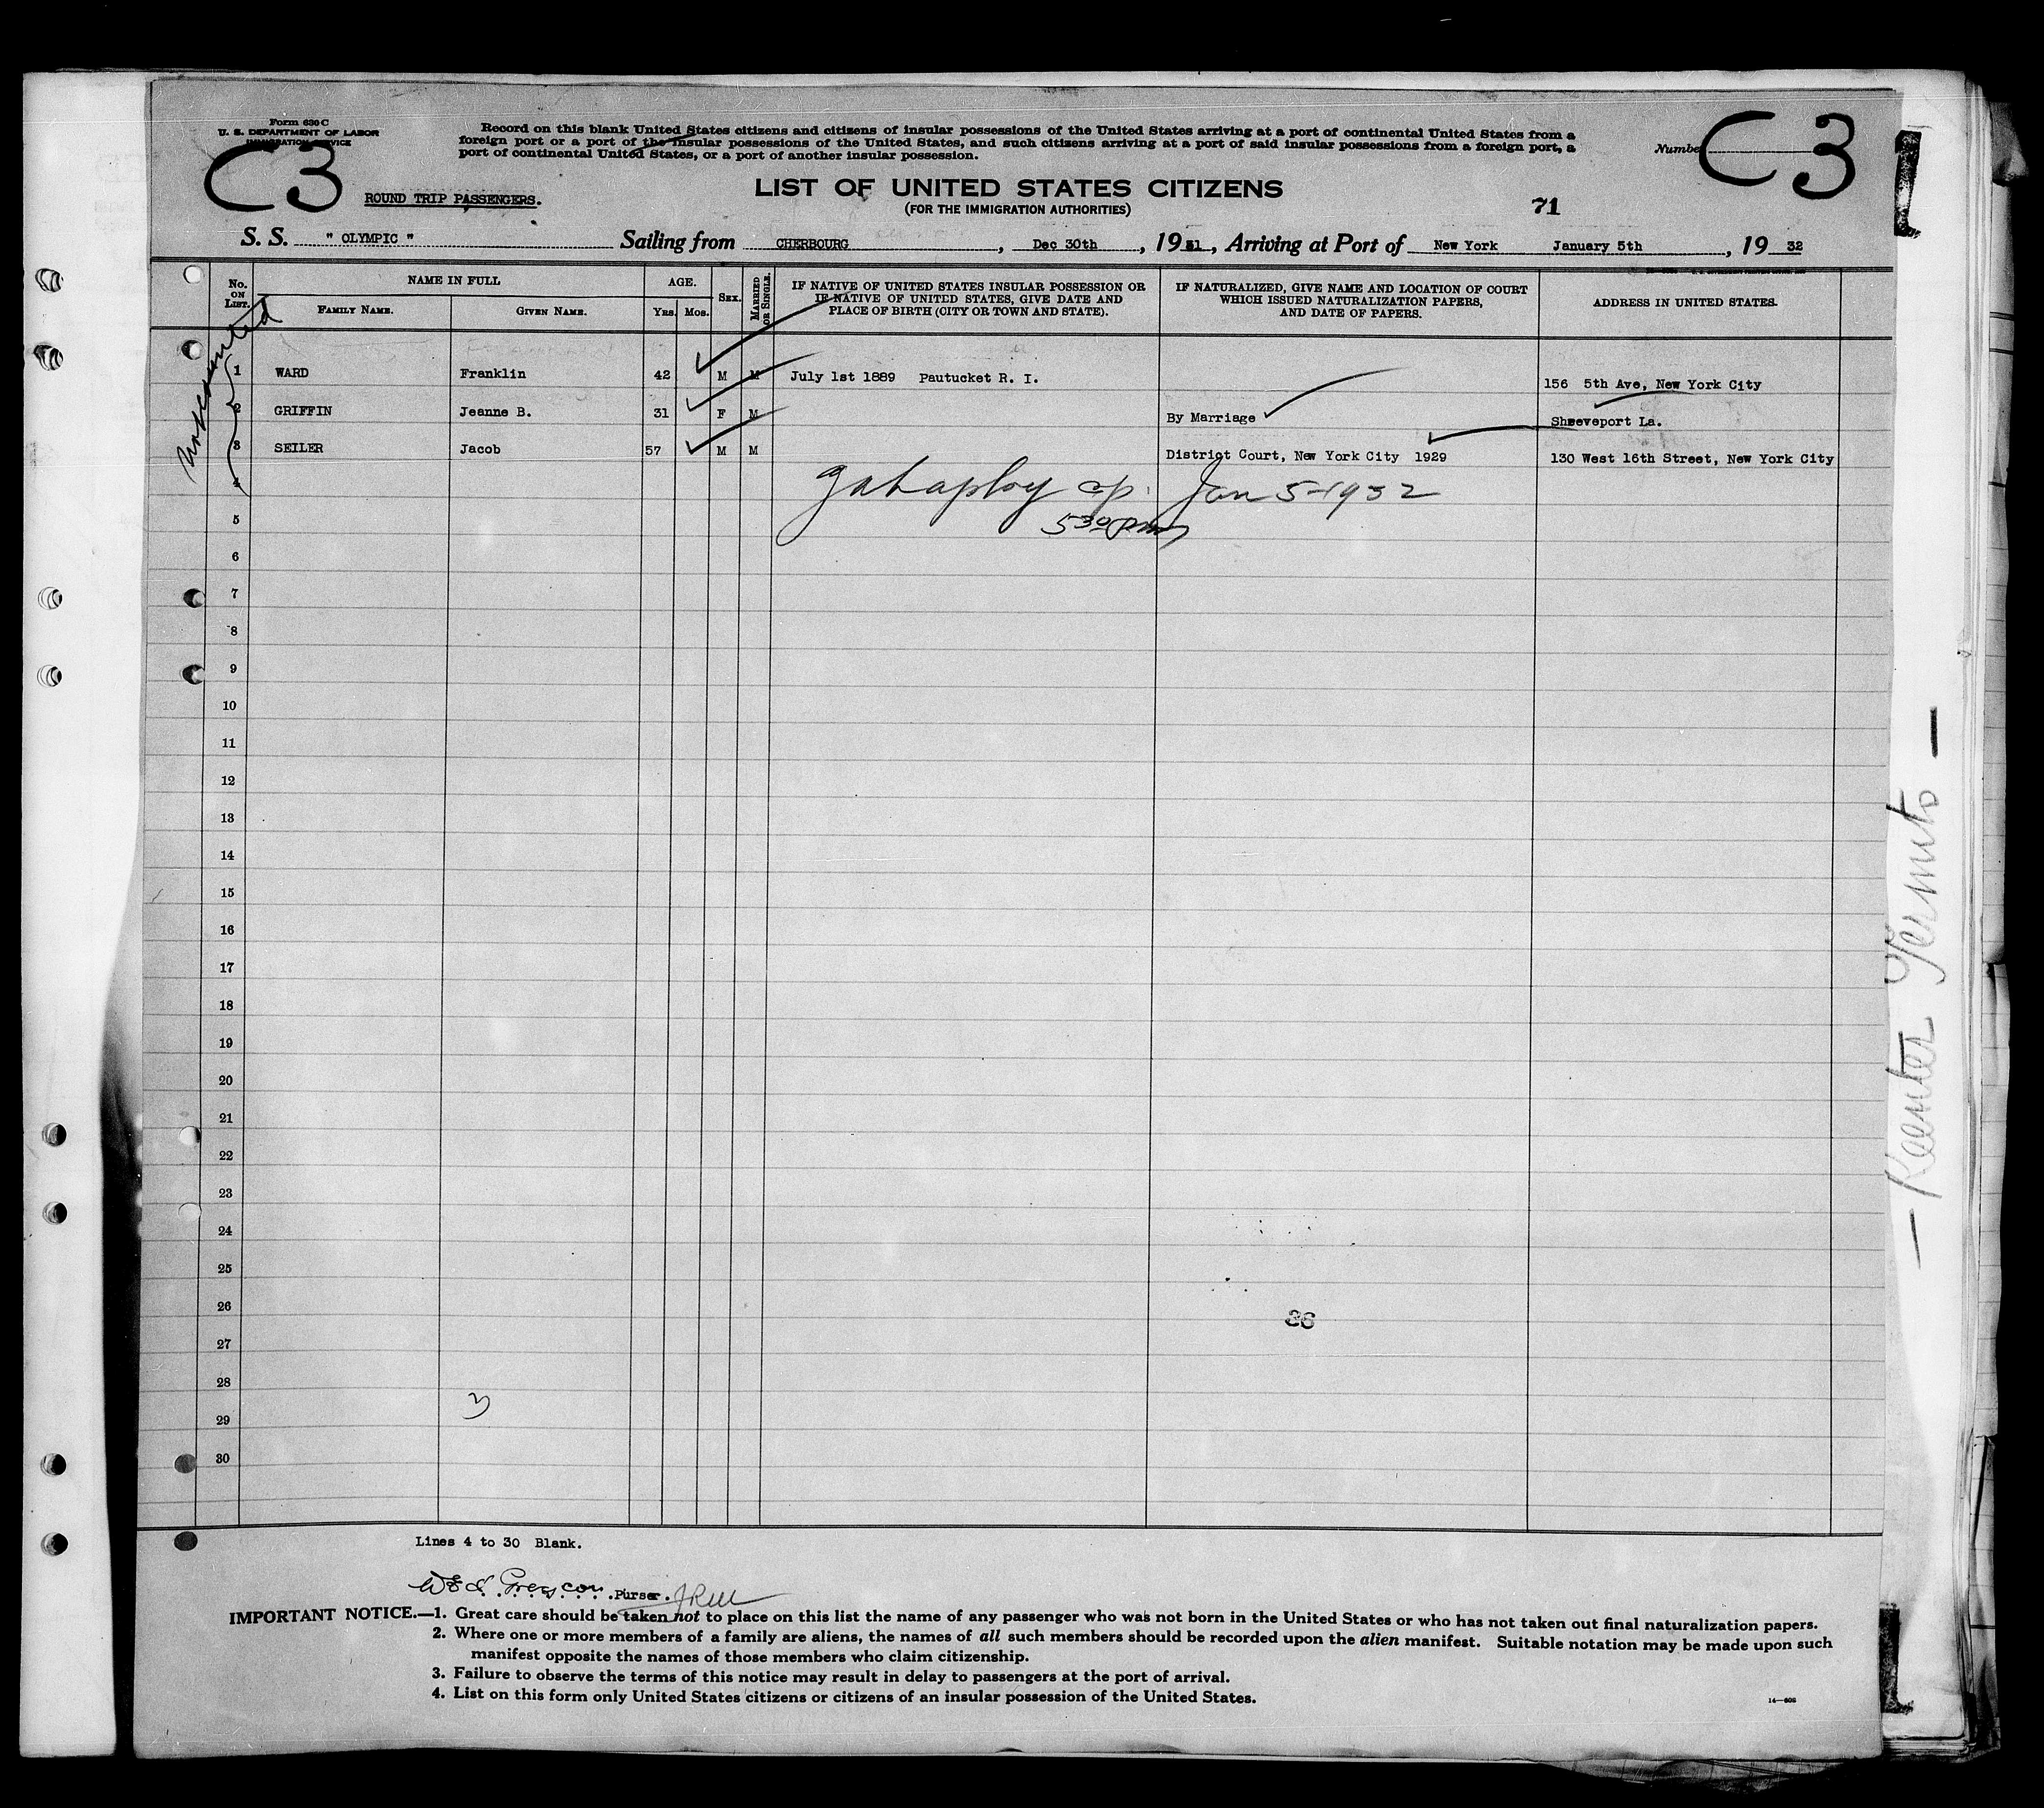 Form 630 C
U. S. DEPARTMENT OF LABOR
IMMIGRATION SERVICE
C3
ROUND TRIP PASSENGERS.
Record on this blank United States citizens and citizens of insular possessions of the United States arriving at a port of continental United States from a
foreign port or a port of the insular possessions of the United States, and such citizens arriving at a port of said insular possessions from a foreign port, a
port of continental United States, or a port of another insular possession.
Number
C3
LIST OF UNITED STATES CITIZENS
(FOR THE IMMIGRATION AUTHORITIES)
71
S. S. " OLYMPIC " Sailing from CHERBOURG, Dec 30th, 1931, Arriving at Port of New York January 5th, 19 32
No. ON LIST.
NAME IN FULL
FAMILY NAME. GIVEN NAME.
AGE.
YRS. MOS.
SEX.
MARRIED OR SINGLE.
IF NATIVE OF UNITED STATES INSULAR POSSESSION OR
IF NATIVE OF UNITED STATES, GIVE DATE AND
PLACE OF BIRTH (CITY OR TOWN AND STATE).
IF NATURALIZED, GIVE NAME AND LOCATION OF COURT
WHICH ISSUED NATURALIZATION PAPERS,
AND DATE OF PAPERS.
ADDRESS IN UNITED STATES.
1 WARD Franklin 42 M M July 1st 1889 Pautucket R. I. 156 5th Ave, New York City
2 GRIFFIN Jeanne B. 31 F M By Marriage Shreveport La.
3 SEILER Jacob 57 M M District Court, New York City 1929 130 West 16th Street, New York City
4
Jan 5-1932
5
5 30 pm
6
7
8
9
10
11
12
13
14
15
16
17
18
19
20
21
22
23
24
25
26
86
27
28
3
29
30
Lines 4 to 30 Blank.
Purser.
IMPORTANT NOTICE.—1. Great care should be taken not to place on this list the name of any passenger who was not born in the United States or who has not taken out final naturalization papers.
2. Where one or more members of a family are aliens, the names of all such members should be recorded upon the alien manifest. Suitable notation may be made upon such
manifest opposite the names of those members who claim citizenship.
3. Failure to observe the terms of this notice may result in delay to passengers at the port of arrival.
4. List on this form only United States citizens or citizens of an insular possession of the United States.
14—608